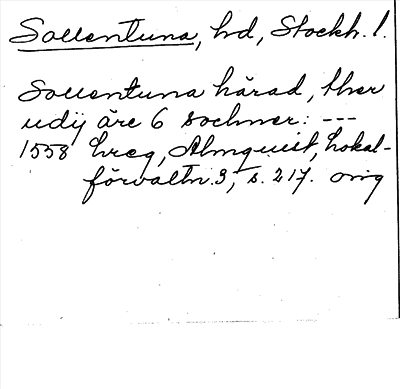 Sollentuna, hd, Stockh. l.
Sollentuna härad, ther
udij äre 6 sochner: ---
1558 hreg, Almquist, Lokal-
förvaltn. 3, s. 217. orig